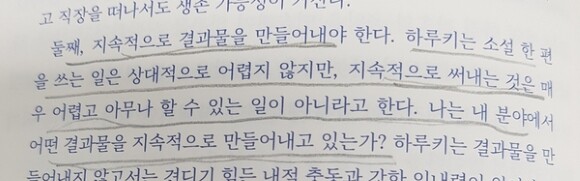 고 직장을 떠나서도 생존 가능성이 커진다.
둘째, 지속적으로 결과물을 만들어내야 한다. 하루키는 소설 한 편
을 쓰는 일은 상대적으로 어렵지 않지만, 지속적으로 써내는 것은 매
우 어렵고 아무나 할 수 있는 일이 아니라고 한다. 나는 내 분야에서
어떤 결과물을 지속적으로 만들어내고 있는가? 하루키는 결과물을 만
들어내지 않고서는 견디기 힘든 내적 충동과 강한 인내력이